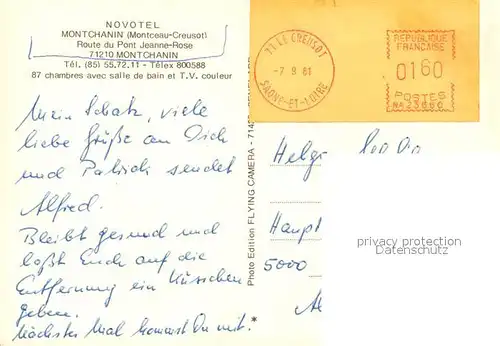 NOVOTEL
MONTCHANIN (Montceau-Creusot)
Route du Pont Jeanne-Rose
71210 MONTCHANIN
Tél. (85) 55.72.11 - Télex 800588
87 chambres avec salle de bain et T.V. couleur
Mein Schatz, viele
liebe Grüße an Dich
und Patrick sendet
Alfred.
Bleibt gesund und
laßt Euch auf die
Entfernung ein Küsschen
geben.
Nächstes Mal kommst Du mit.*
Photo Edition FLYING CAMERA - 7142
71 LE CREUSOT
-7 9 81
SAONE-ET-LOIRE
REPUBLIQUE
FRANCAISE
0160
POSTES
Helg
Haupt
5000
privacy protection
Datenschutz